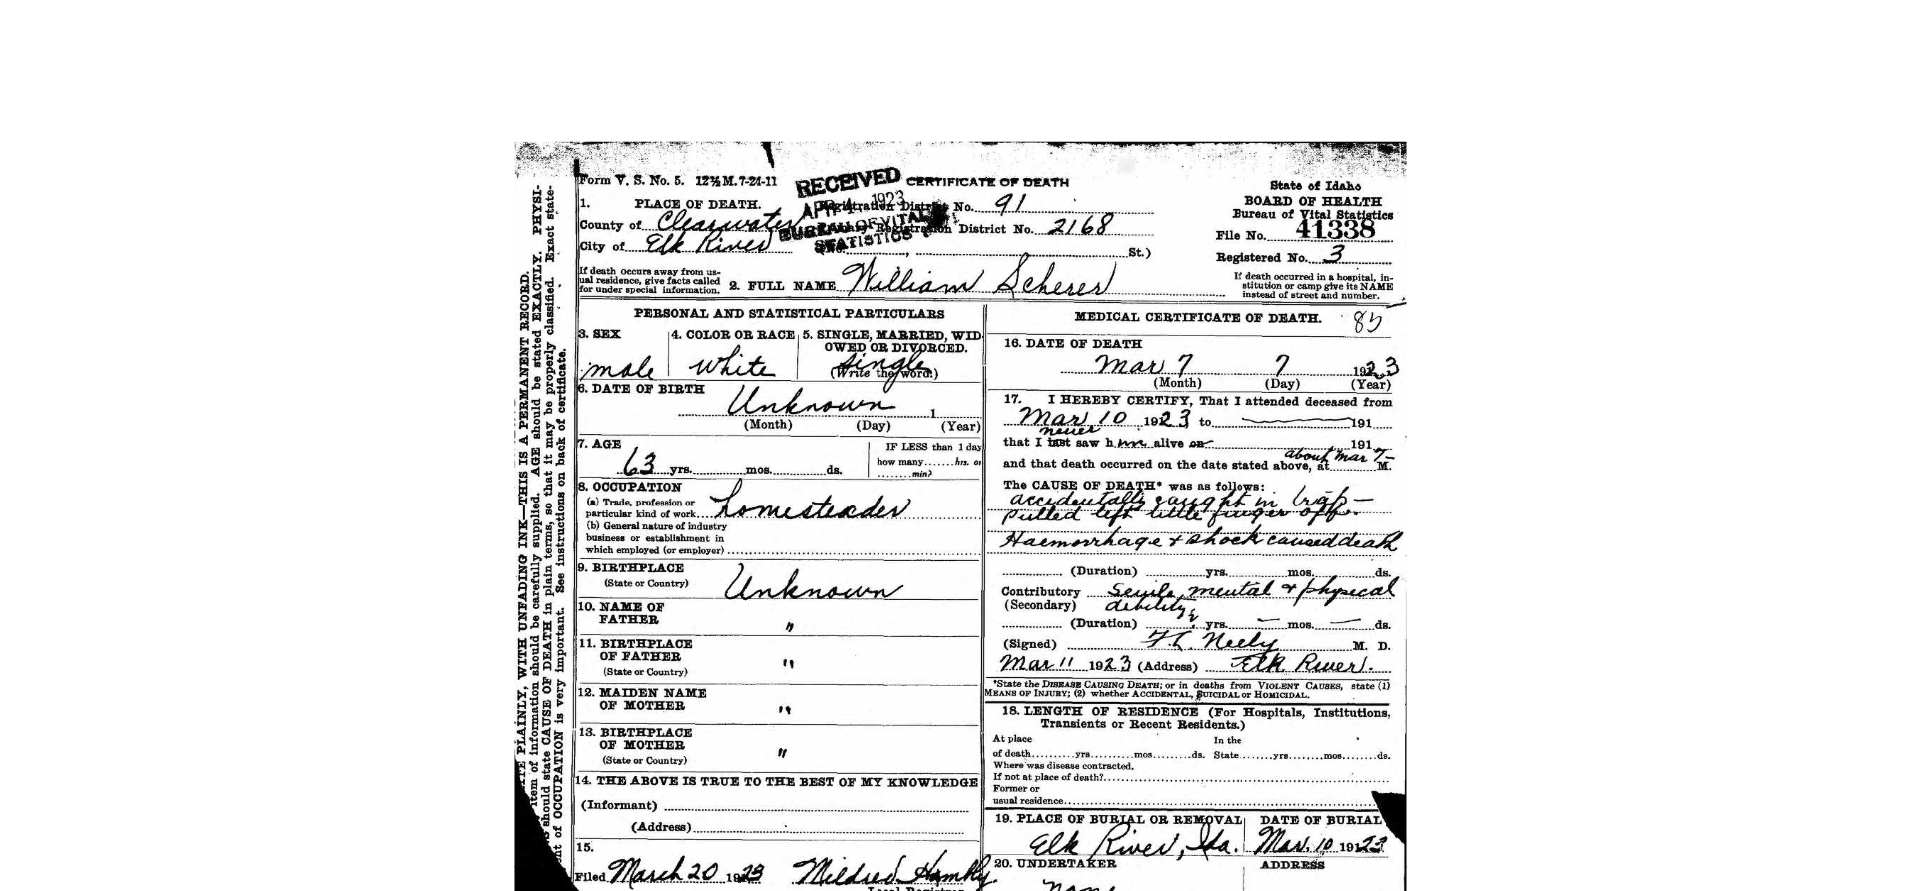 Form V. S. No. 5. 12½M. 7-24-11
RECEIVED
APR 4 1923
BUREAU OF VITAL
STATISTICS
CERTIFICATE OF DEATH
State of Idaho
BOARD OF HEALTH
Bureau of Vital Statistics
File No. 41338
Registered No. 3
1. PLACE OF DEATH.
Registration District No. 91
County of Clearwater
Registration District No. 2168
City of Elk River
St.)
If death occurs away from us-
ual residence, give facts called
for under special information.
2. FULL NAME William Scherer
If death occurred in a hospital, in-
stitution or camp give its NAME
instead of street and number.
PERSONAL AND STATISTICAL PARTICULARS
3. SEX
male
4. COLOR OR RACE
white
5. SINGLE, MARRIED, WID
OWED OR DIVORCED.
(Write the word.)
single
6. DATE OF BIRTH
Unknown 1
(Month) (Day) (Year)
7. AGE
63 yrs. mos. ds.
IF LESS than 1 day
how many hrs. or
min?
8. OCCUPATION
(a) Trade, profession or
particular kind of work Homesteader
(b) General nature of industry
business or establishment in
which employed (or employer)
9. BIRTHPLACE
(State or Country) Unknown
10. NAME OF
FATHER "
11. BIRTHPLACE
OF FATHER "
(State or Country)
12. MAIDEN NAME
OF MOTHER "
13. BIRTHPLACE
OF MOTHER "
(State or Country)
14. THE ABOVE IS TRUE TO THE BEST OF MY KNOWLEDGE
(Informant)
(Address)
15.
Filed March 20 1923 Mildred
Local Registrar
MEDICAL CERTIFICATE OF DEATH. 85
16. DATE OF DEATH
Mar 7 7 1923
(Month) (Day) (Year)
17. I HEREBY CERTIFY, That I attended deceased from
Mar 10 1923 to 191
never
that I last saw him alive on 191
about Mar 7-
and that death occurred on the date stated above, at M.
The CAUSE OF DEATH* was as follows:
accidentally caught in trap—
pulled left little finger off.
Haemorrhage + shock caused death
(Duration) yrs. mos. ds.
Contributory Senile, mental + physical
(Secondary) debility
(Duration) ? yrs. — mos. — ds.
(Signed) F.L. Neely M. D.
Mar 11 1923 (Address) Elk River.
*State the DISEASE CAUSING DEATH; or in deaths from VIOLENT CAUSES, state (1)
MEANS OF INJURY; (2) whether ACCIDENTAL, SUICIDAL or HOMICIDAL.
18. LENGTH OF RESIDENCE (For Hospitals, Institutions,
Transients or Recent Residents.)
At place In the
of death yrs. mos. ds. State yrs. mos. ds.
Where was disease contracted.
If not at place of death?
Former or
usual residence
19. PLACE OF BURIAL OR REMOVAL
Elk River, Ida.
DATE OF BURIAL
Mar. 10 1923
20. UNDERTAKER
none
ADDRESS
WITH UNFADING INK—THIS IS A PERMANENT RECORD.
item of information should be carefully supplied. AGE should be stated EXACTLY. PHYSI-
should state CAUSE OF DEATH in plain terms, so that it may be properly classified. Exact state-
of OCCUPATION is very important. See instructions on back of certificate.